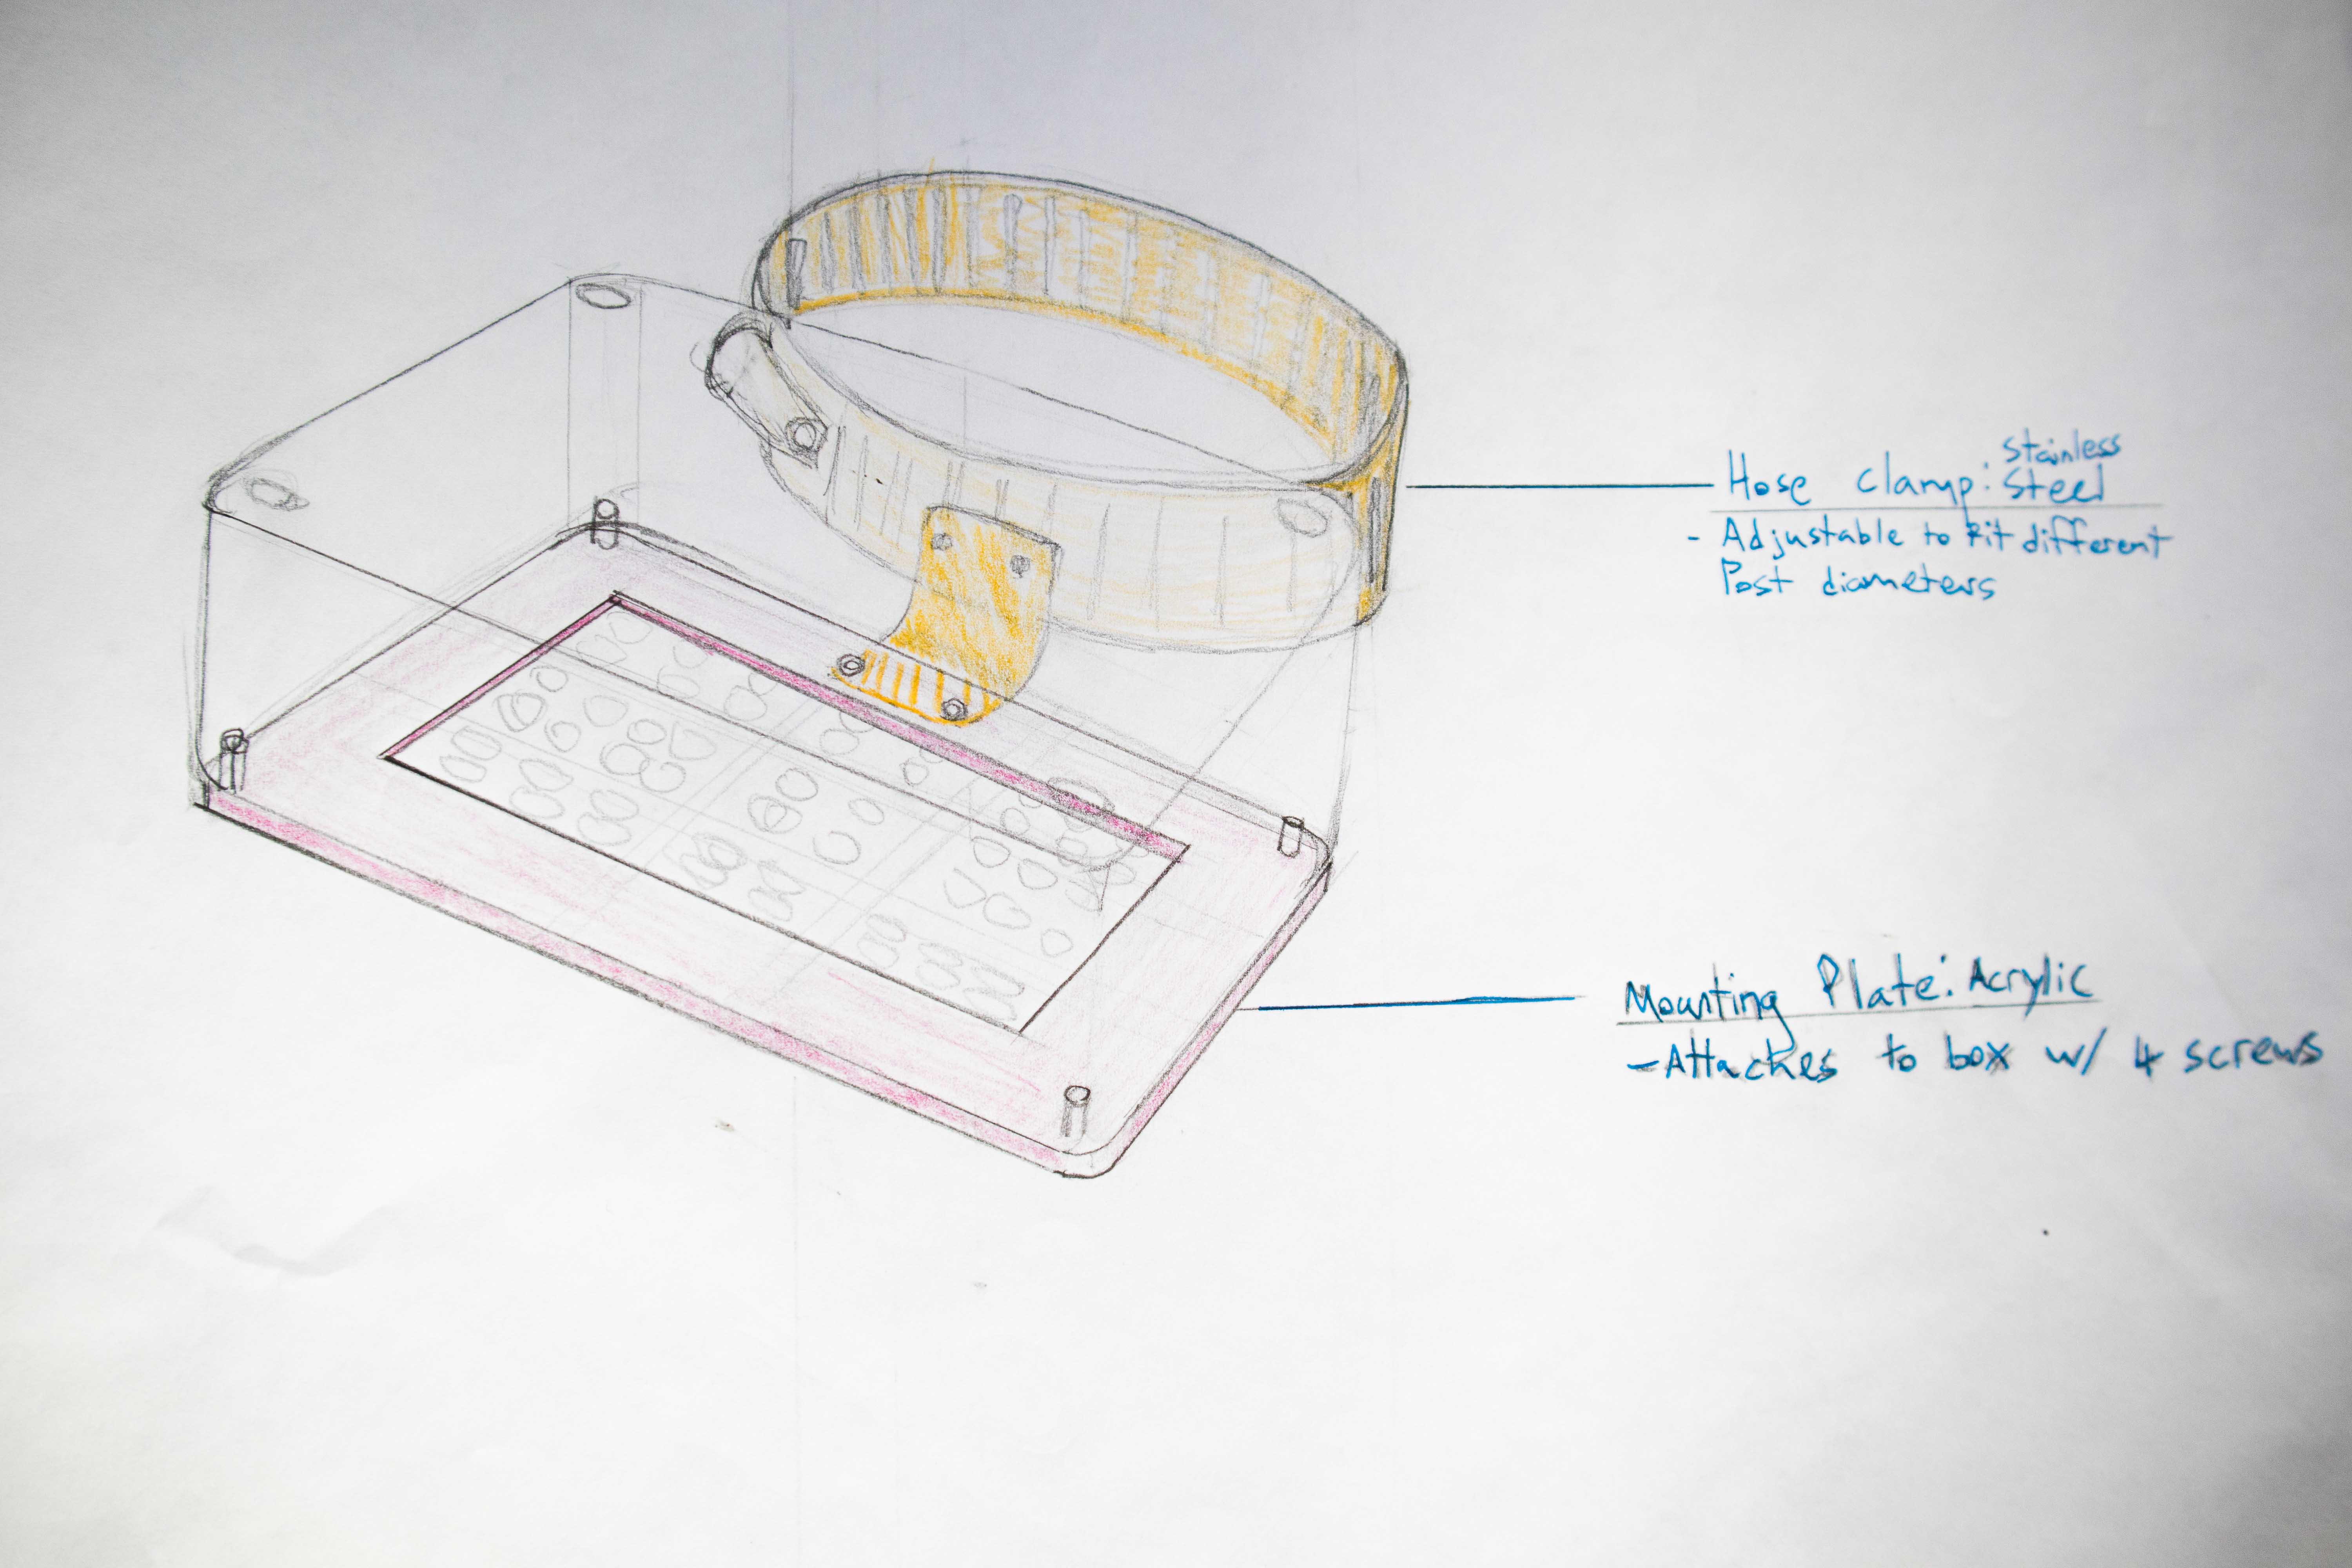 Hose clamp: Stainless Steel
- Adjustable to fit different
Post diameters
Mounting Plate: Acrylic
- Attaches to box w/ 4 screws